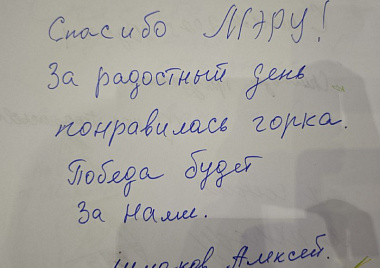 Спасибо МЭРУ!
За радостный день
понравилась горка.
Победа будет
за нами.
Алексей.